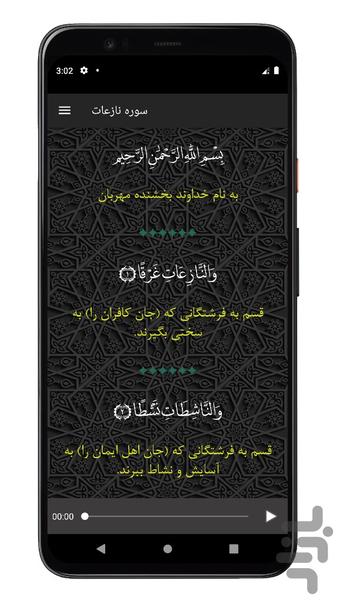 3:02
سوره نازعات
بِسْمِ اللَّهِ الرَّحْمَٰنِ الرَّحِيمِ
به نام خداوند بخشنده مهربان
وَالنَّازِعَاتِ غَرْقًا ﴿۱﴾
قسم به فرشتگانی که (جان کافران را) به
سختی بگیرند.
وَالنَّاشِطَاتِ نَشْطًا ﴿۲﴾
قسم به فرشتگانی که (جان اهل ایمان را) به
آسایش و نشاط ببرند.
00:00
بازار